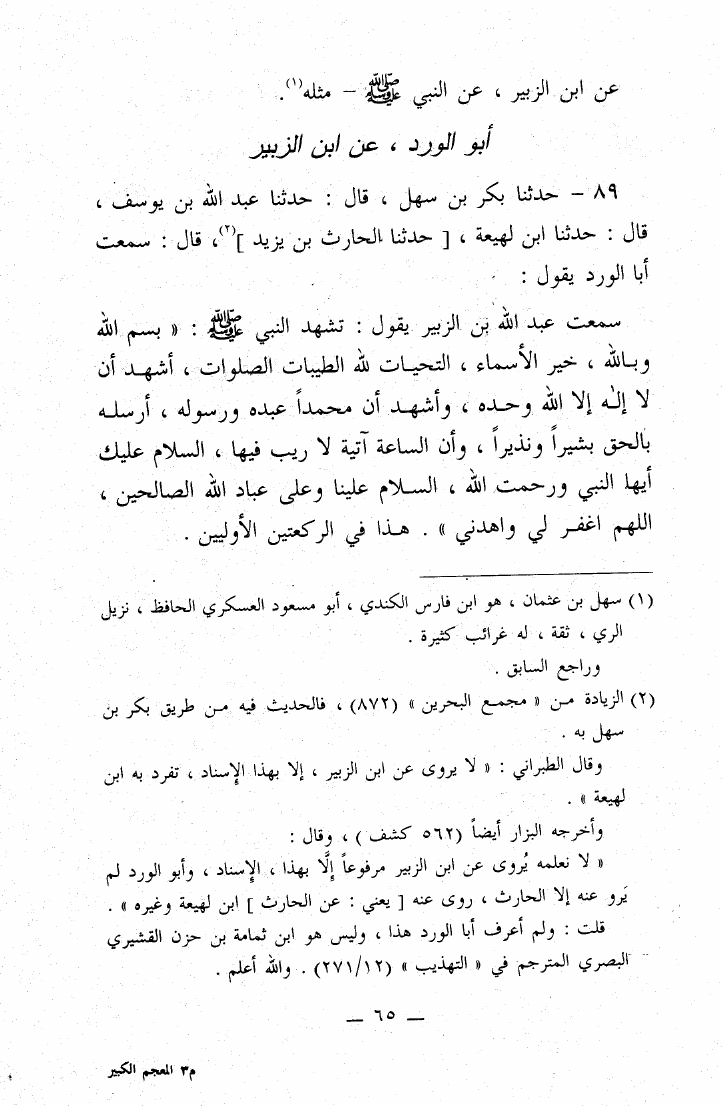 عن ابن الزبير ، عن النبي ﷺ – مثله(١).
أبو الورد ، عن ابن الزبير
٨٩ – حدثنا بكر بن سهل ، قال : حدثنا عبد الله بن يوسف ،
قال : حدثنا ابن لهيعة ، [ حدثنا الحارث بن يزيد ](٢)، قال : سمعت
أبا الورد يقول :
سمعت عبد الله بن الزبير يقول : تشهد النبي ﷺ : « بسم الله
وبـالله ، خير الأسماء ، التحيـات لله الطيبات الصلوات ، أشهـد أن
لا إلٰـه إلا الله وحـده ، وأشهـد أن محمداً عبده ورسوله ، أرسلـه
بالحق بشيراً ونذيراً ، وأن الساعة آتية لا ريب فيها ، السلام عليك
أيها النبي ورحمت الله ، السـلام علينا وعلى عباد الله الصالحين ،
اللهم اغفـر لي واهدني » . هـذا في الركعتين الأوليين .
(١) سهل بن عثمان ، هو ابن فارس الكندي ، أبو مسعود العسكري الحافظ ، نزيل
الري ، ثقة ، له غرائب كثيرة .
وراجع السابق .
(٢) الزيادة مـن « مجمـع البحرين » (٨٧٢) ، فالحديث فيه مـن طريق بكر بن
سهل به .
وقال الطبراني : « لا يروى عن ابن الزبير ، إلا بهذا الإسناد ، تفرد به ابن
لهيعة » .
وأخرجه البزار أيضاً (٥٦٢ كشف ) ، وقال :
« لا نعلمه يُروى عن ابن الزبير مرفوعاً إلَّا بهذا ، الإسناد ، وأبو الورد لم
يَرو عنه إلا الحارث ، روى عنه [ يعني : عن الحارث ] ابن لهيعة وغيره » .
قلت : ولم أعرف أبا الورد هذا ، وليس هو ابن ثمامة بن حزن القشيري
البصري المترجم في « التهذيب » (٢٧١/١٢) . والله أعلم .
— ٦٥ —
م٣ المعجم الكبير